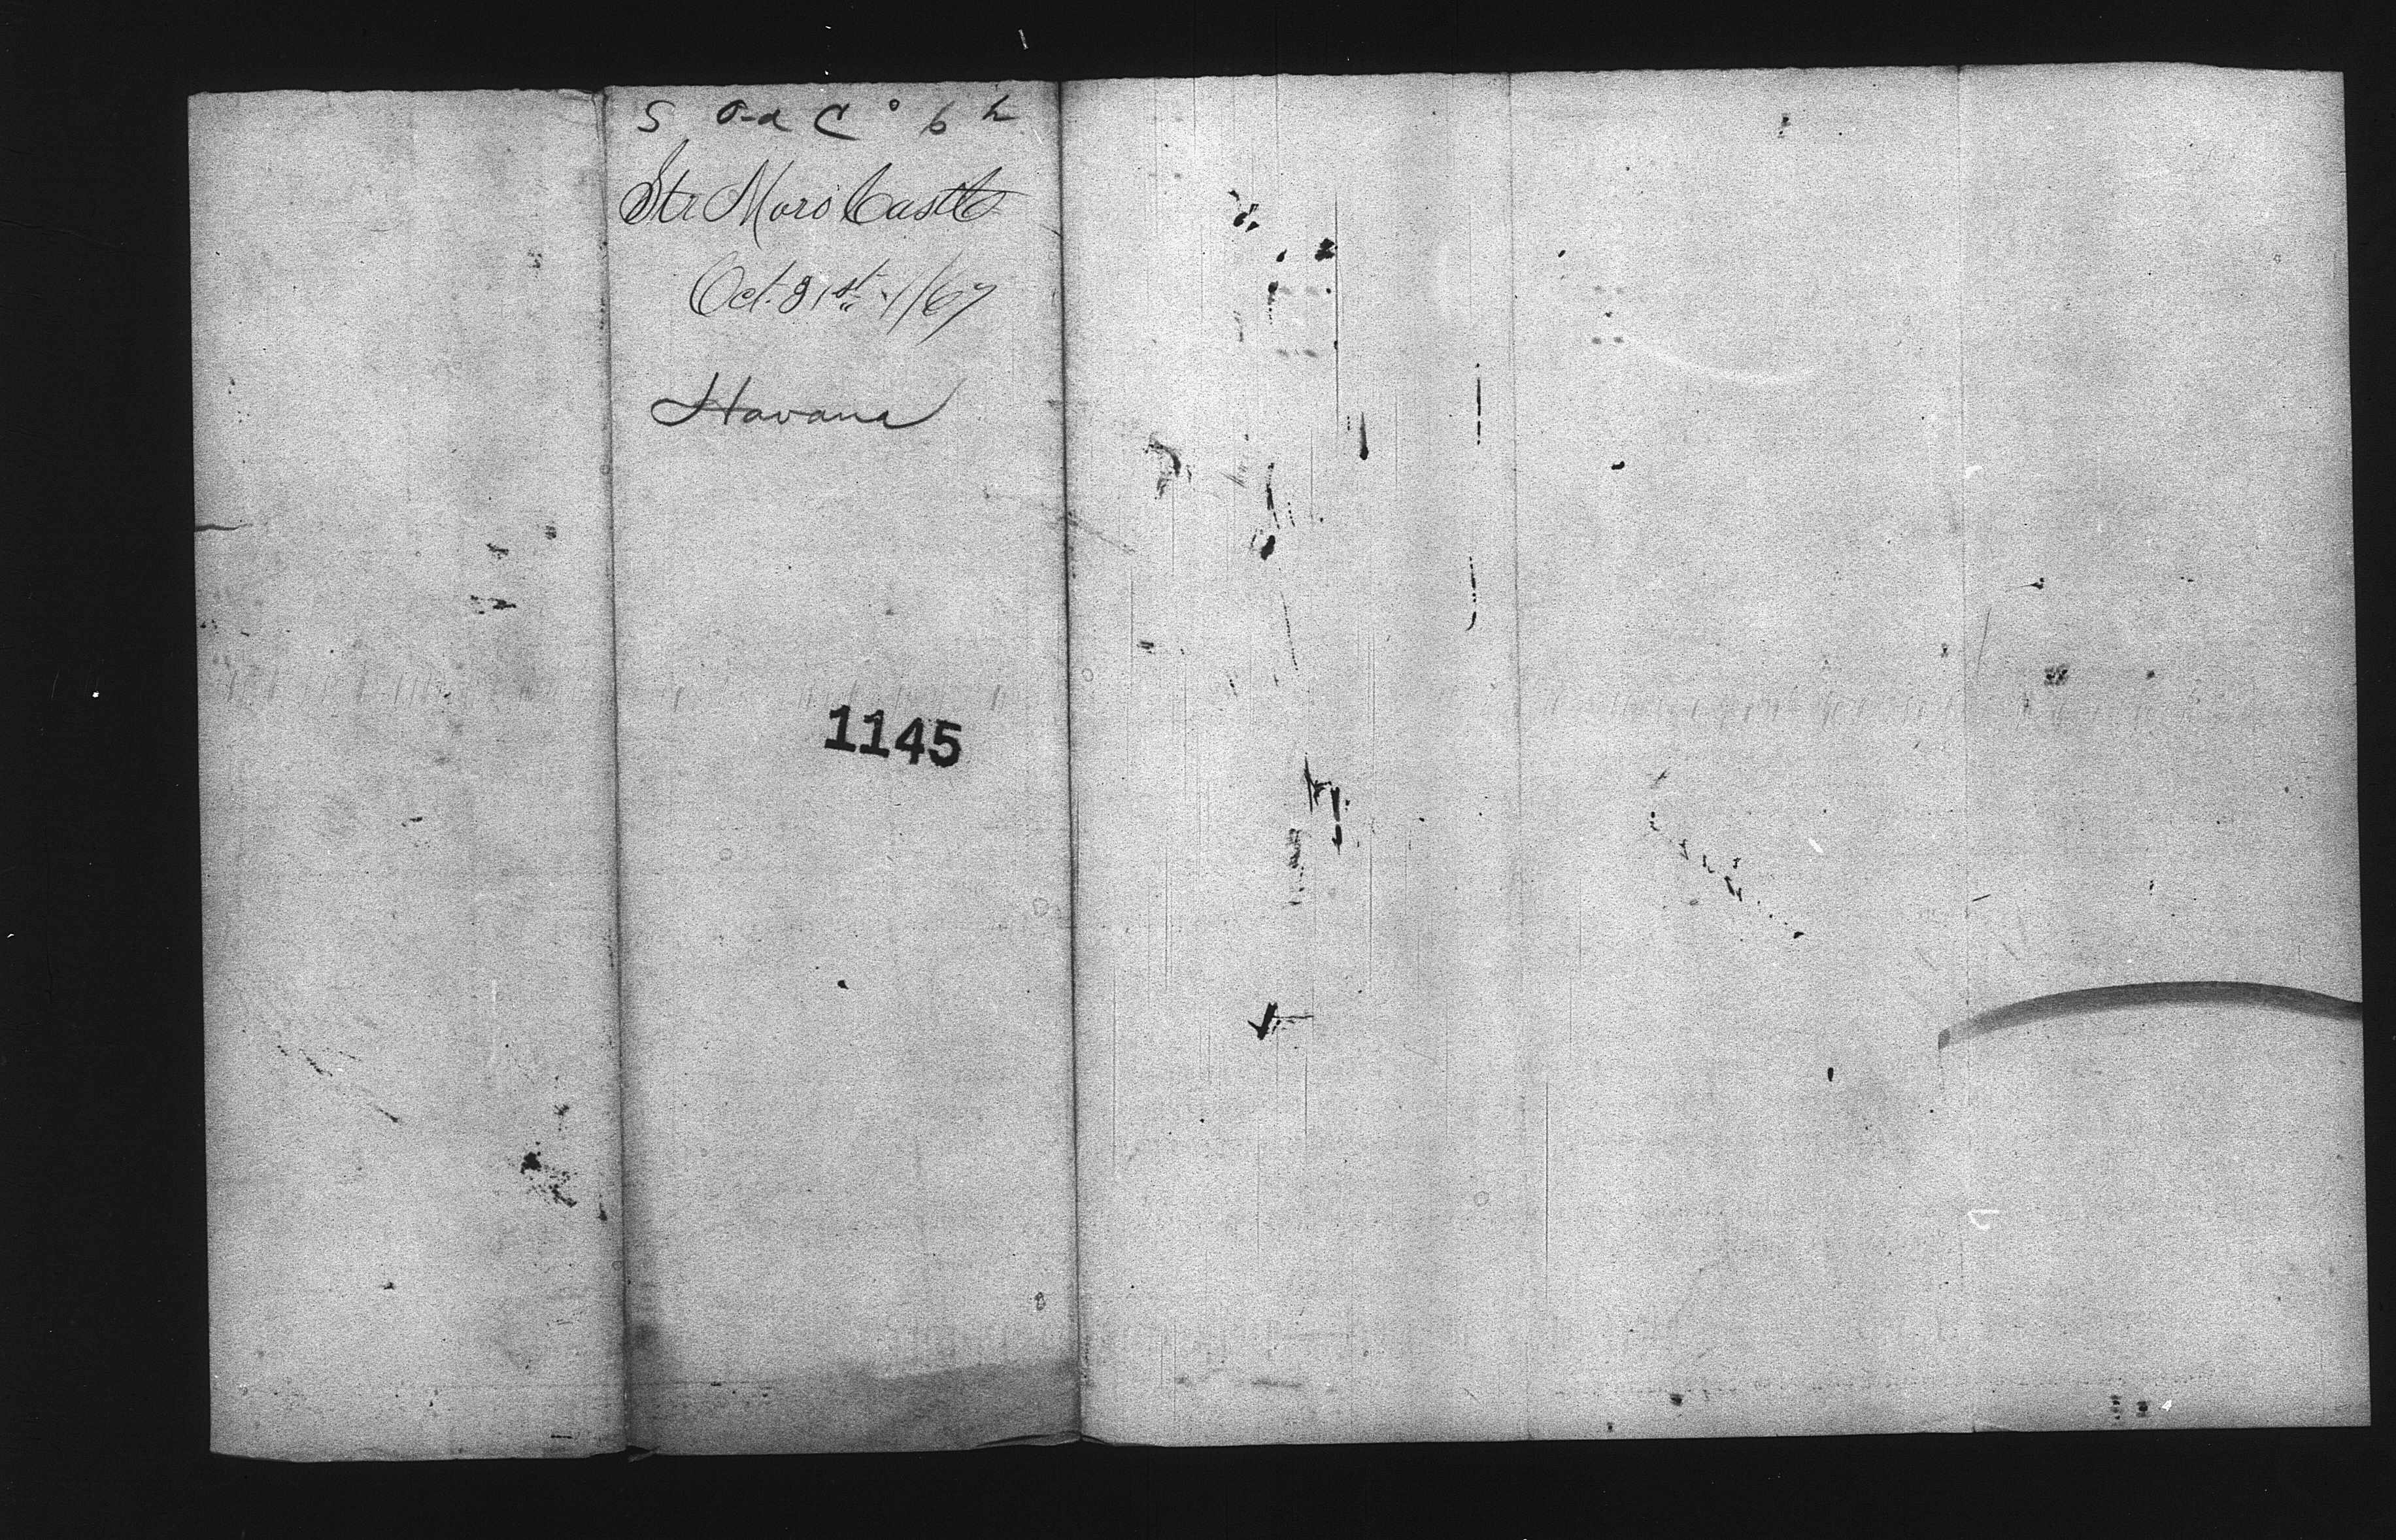 Str Moro Castle
Oct. 31st 1/67
Havana
1145